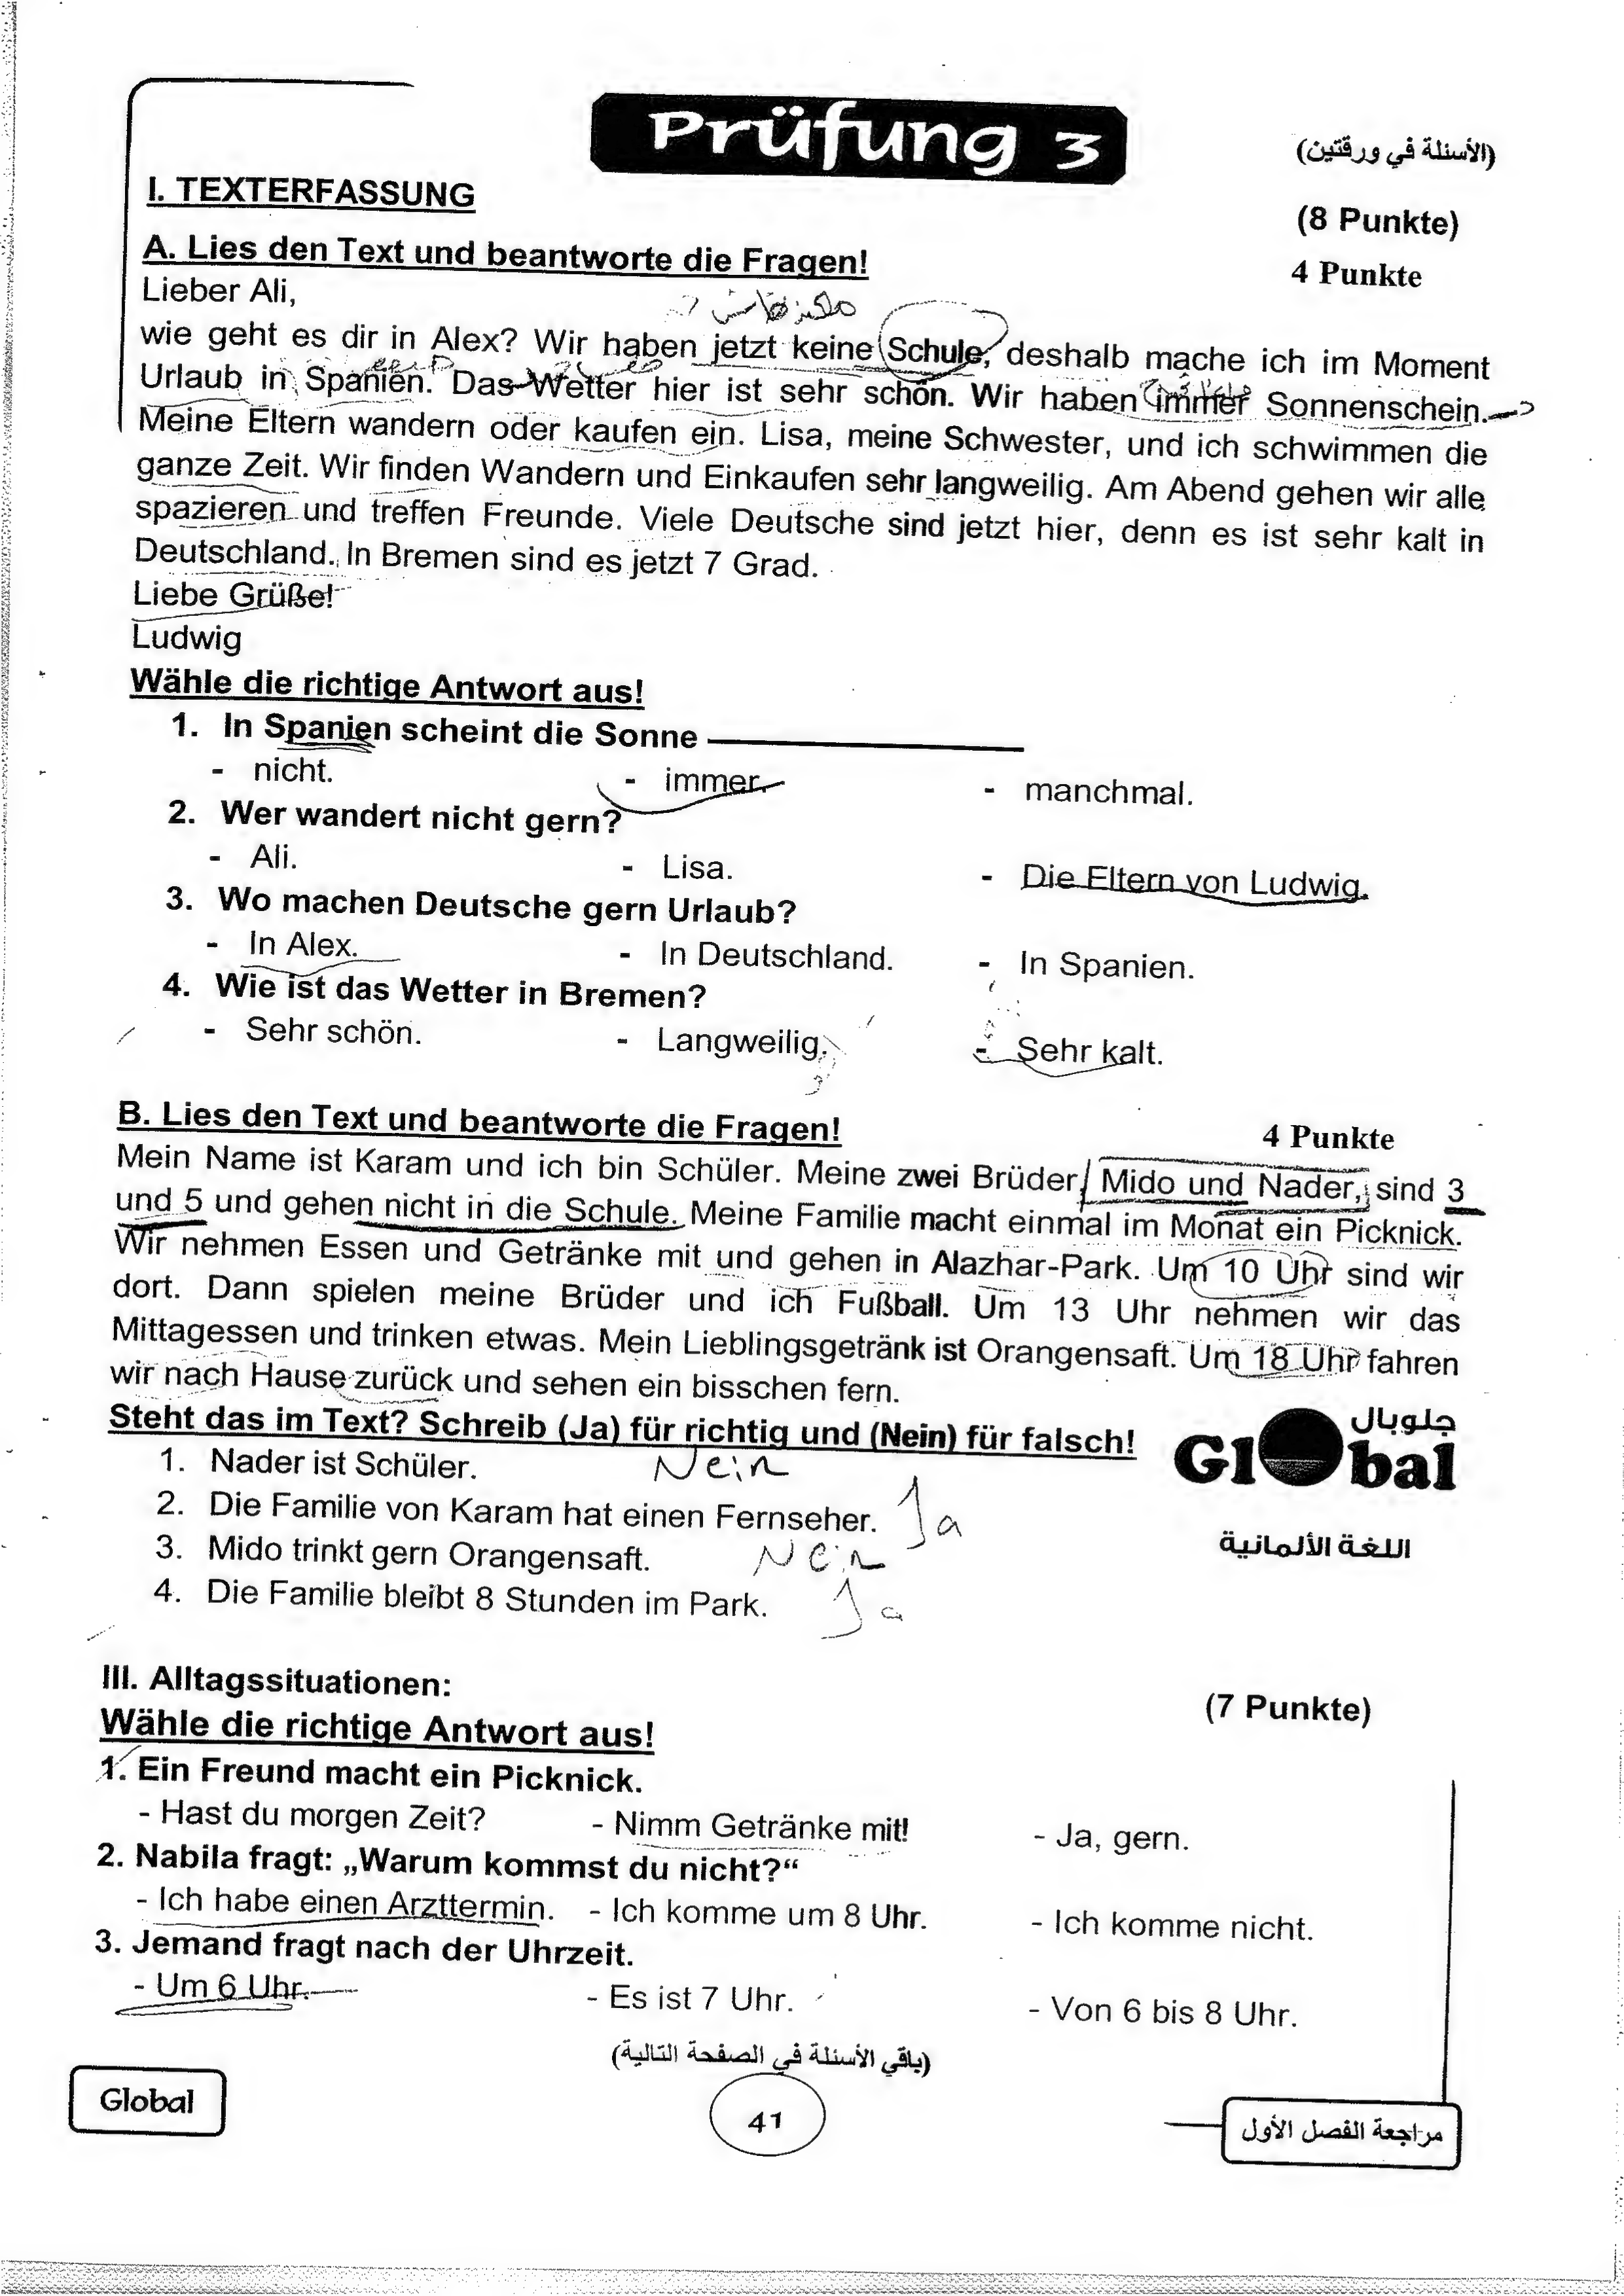 Prüfung 3
(الأسئلة في ورقتين)
I. TEXTERFASSUNG
(8 Punkte)
A. Lies den Text und beantworte die Fragen!
4 Punkte
Lieber Ali,
wie geht es dir in Alex? Wir haben jetzt keine Schule, deshalb mache ich im Moment
Urlaub in Spanien. Das Wetter hier ist sehr schön. Wir haben immer Sonnenschein.
Meine Eltern wandern oder kaufen ein. Lisa, meine Schwester, und ich schwimmen die
ganze Zeit. Wir finden Wandern und Einkaufen sehr langweilig. Am Abend gehen wir alle
spazieren und treffen Freunde. Viele Deutsche sind jetzt hier, denn es ist sehr kalt in
Deutschland. In Bremen sind es jetzt 7 Grad.
Liebe Grüße!
Ludwig
Wähle die richtige Antwort aus!
1. In Spanien scheint die Sonne
- nicht. - immer. - manchmal.
2. Wer wandert nicht gern?
- Ali. - Lisa. - Die Eltern von Ludwig.
3. Wo machen Deutsche gern Urlaub?
- In Alex. - In Deutschland. - In Spanien.
4. Wie ist das Wetter in Bremen?
- Sehr schön. - Langweilig. - Sehr kalt.
B. Lies den Text und beantworte die Fragen!
4 Punkte
Mein Name ist Karam und ich bin Schüler. Meine zwei Brüder, Mido und Nader, sind 3
und 5 und gehen nicht in die Schule. Meine Familie macht einmal im Monat ein Picknick.
Wir nehmen Essen und Getränke mit und gehen in Alazhar-Park. Um 10 Uhr sind wir
dort. Dann spielen meine Brüder und ich Fußball. Um 13 Uhr nehmen wir das
Mittagessen und trinken etwas. Mein Lieblingsgetränk ist Orangensaft. Um 18 Uhr fahren
wir nach Hause zurück und sehen ein bisschen fern.
Steht das im Text? Schreib (Ja) für richtig und (Nein) für falsch!
جلوبال
Global
اللغة الألمانية
1. Nader ist Schüler. Nein
2. Die Familie von Karam hat einen Fernseher. Ja
3. Mido trinkt gern Orangensaft. Nein
4. Die Familie bleibt 8 Stunden im Park. Ja
III. Alltagssituationen:
(7 Punkte)
Wähle die richtige Antwort aus!
1. Ein Freund macht ein Picknick.
- Hast du morgen Zeit? - Nimm Getränke mit! - Ja, gern.
2. Nabila fragt: „Warum kommst du nicht?“
- Ich habe einen Arzttermin. - Ich komme um 8 Uhr. - Ich komme nicht.
3. Jemand fragt nach der Uhrzeit.
- Um 6 Uhr. - Es ist 7 Uhr. - Von 6 bis 8 Uhr.
(باقي الأسئلة في الصفحة التالية)
Global
41
مراجعة الفصل الأول